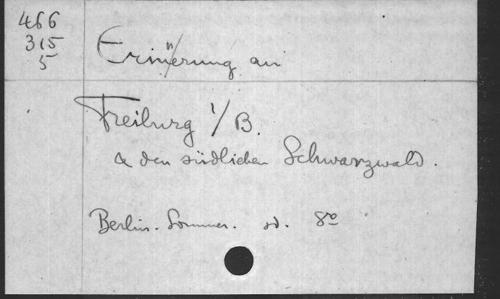 466
315
5
Erinnerung an
Freiburg i/B.
& den südlichen Schwarzwald.
Berlin. Sommer. sd. 8º